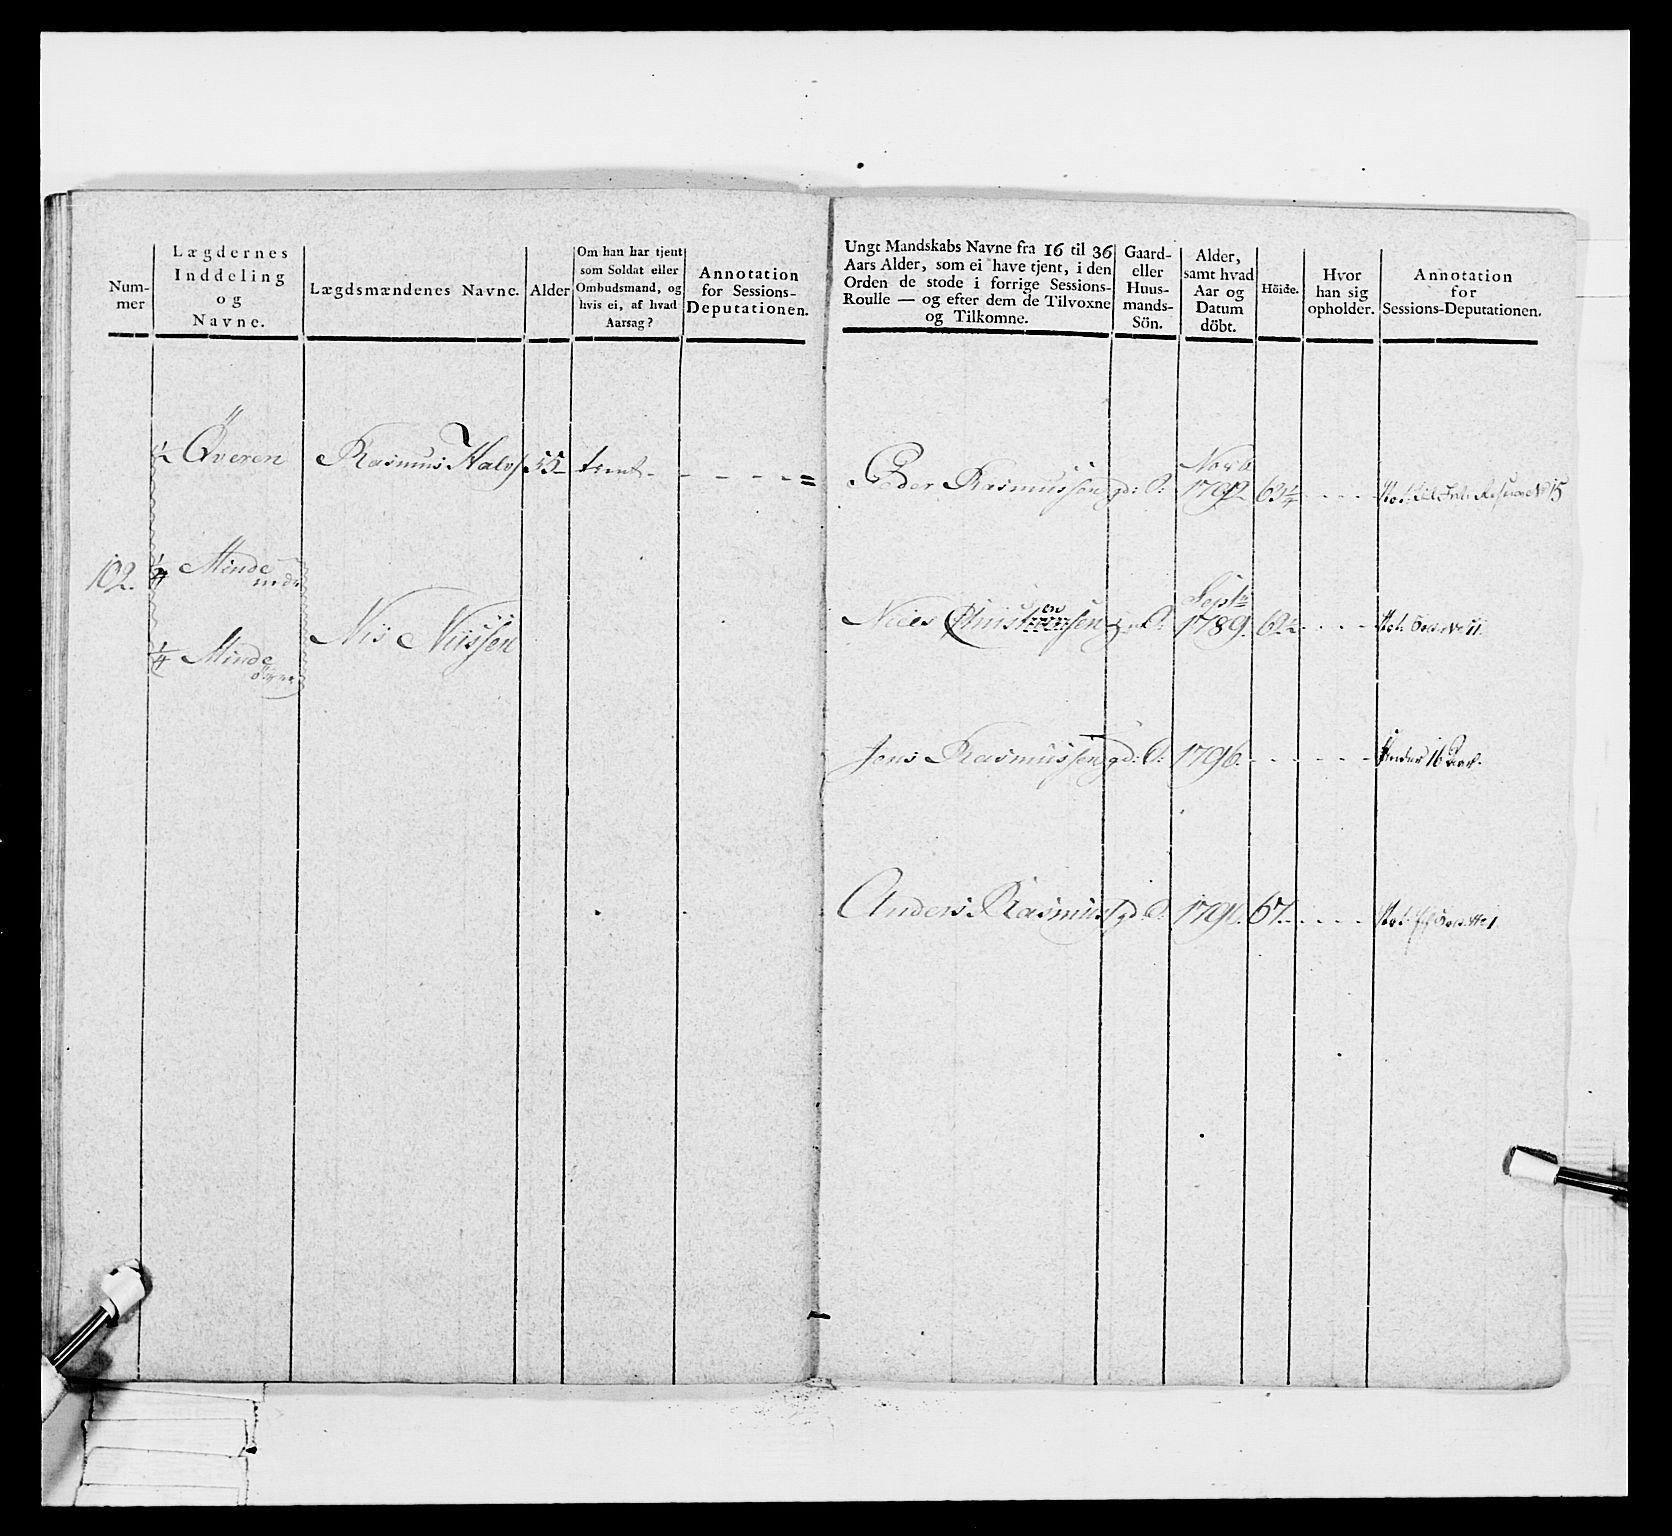 Num-
mer
Lægdernes
Inddeling
og
Navne.
Lægdsmændenes Navne.
Alder
Om han har tjent
som Soldat eller
Ombudsmand, og
hvis ei, af hvad
Aarsag?
Annotation
for Sessions-
Deputationen.
½ Överen Rasmus Halvs 55
102. ¼ Minde
nedr
¼ Minde
övre
Nis Niissen
Ungt Mandskabs Navne fra 16 til 36
Aars Alder, som ei have tjent, i den
Orden de stode i forrige Sessions-
Roulle — og efter dem de Tilvoxne
og Tilkomne.
Gaard-
eller
Huus-
mands-
Sön.
Alder,
samt hvad
Aar og
Datum
döbt.
Höide.
Hvor
han sig
opholder.
Annotation
for
Sessions-Deputationen.
Novb
Peder Rasmussen gd: S: 1792 63¼ No 15
Septb
Niels Christensen S: 1789. 62½ No 11.
Jens Rasmussen gd: S: 1796. Under 16 Aar.
Anders Rasmuss gd. S. 1790. 67. No 1